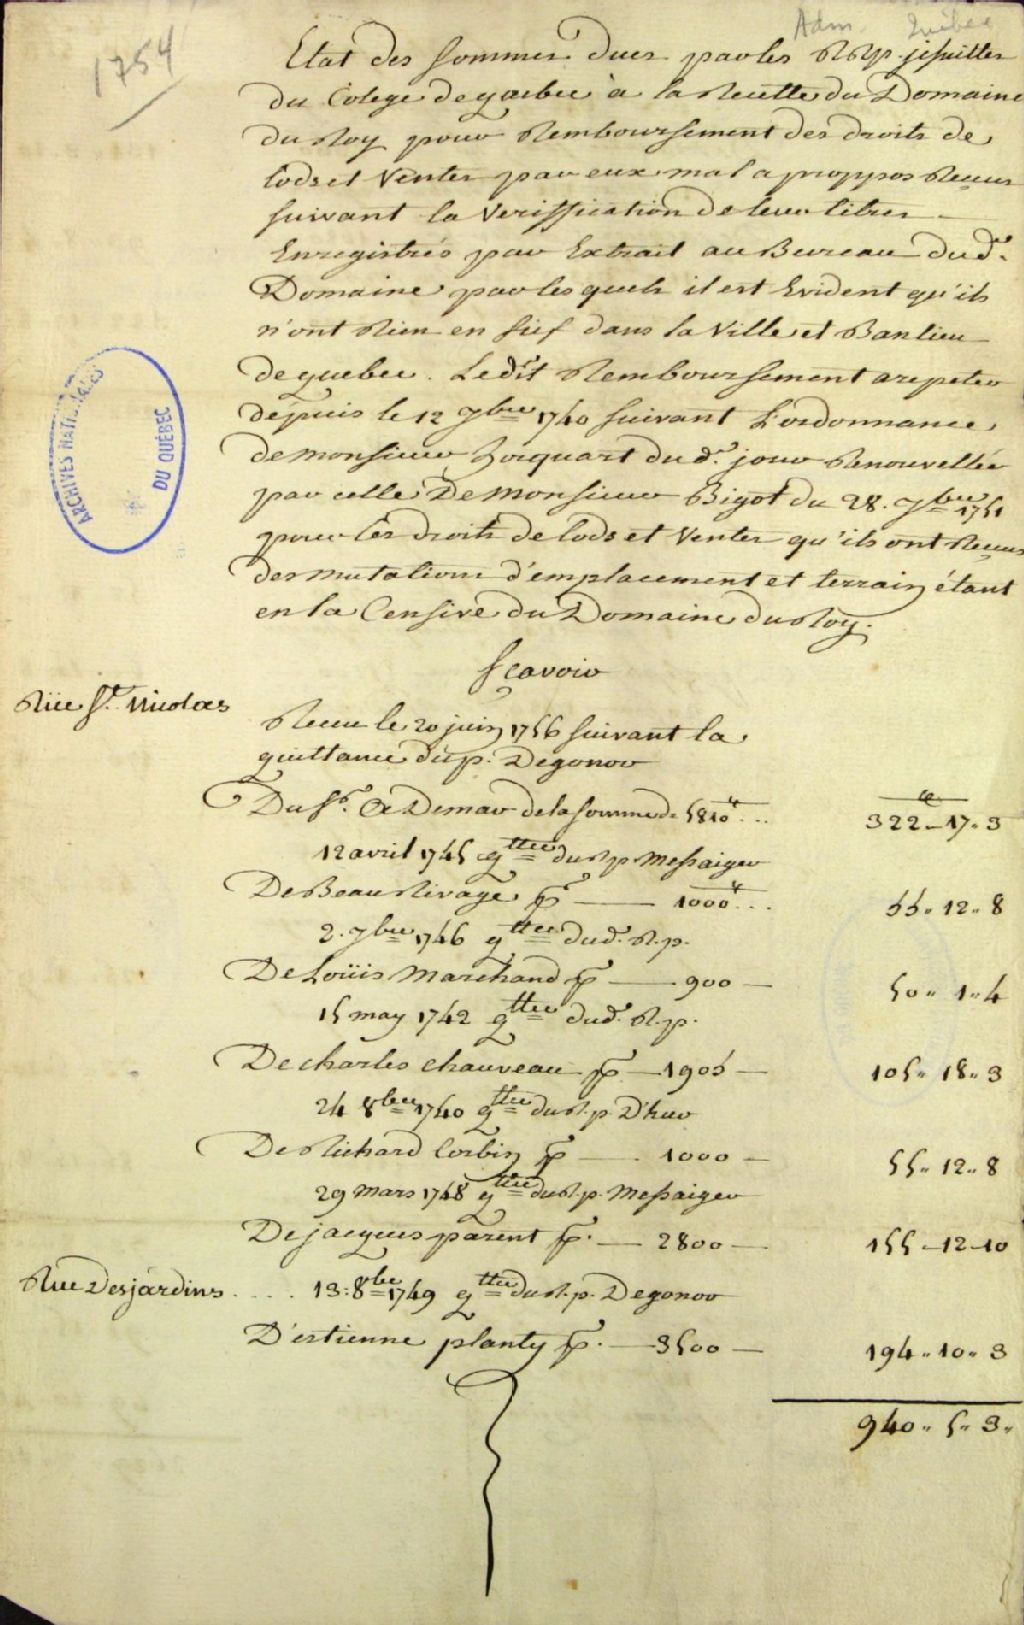 1754
Adm. Québec
Etat des sommes dues par les RRpp. jesuittes
du Colege de quebec à la Recette du Domaine
du Roy pour Remboursement des droits de
lods et Ventes par eux mal a proppos Reçus
suivant la Veriffication de leur titres
Enregistrés par Extrait au Bureau dud.
Domaine par lesquels il est Evident qu'ils
n'ont Rien en fief dans la Ville et Banlieu
de quebec. Ledit Remboursement a repeter
depuis le 12 7bre 1740 suivant L'ordonnance
de monsieur hocquart dud. jour Renouvellée
par celle De monsieur Bigot du 28. 7bre 1751
pour les droits de lods et Ventes qu'ils ont Reçus
des mutations d'emplacement et terrain étant
en la Censive du Domaine du Roy.
Sçavoir
Rüe St. Nicolas
Recu le 20 juin 1756 suivant la
quittance du p. Degonor
Du Sr. Demar de la somme de 5810tt ... 322 - 17 - 3
12 avril 1745 qttce du R p Messaiger
De Beau Rivage p —— 1000tt ... 55 " 12 " 8
2. 7bre 1746 qttce dud. R. p.
De Loüis Marchand p —— 900 — 50 " 1 " 4
15 may 1742 qttce dud. R. p.
De charles chauveau p — 1905 — 105 " 18 " 3
24 8bre 1740 qttce du R. p. D'huv
De Richard Corbin p —— 1000 — 55 " 12 " 8
29 mars 1748 qttce du R. p. Messaiger
De jacques parent p. — 2800 — 155 - 12 - 10
Rue Desjardins .... 13. 8bre 1749 qttce du R. p. Degonor
D'estienne planty p. — 3500 — 194 " 10 " 3
940 " 5 " 3 "
ARCHIVES NATIONALES
DU QUÉBEC